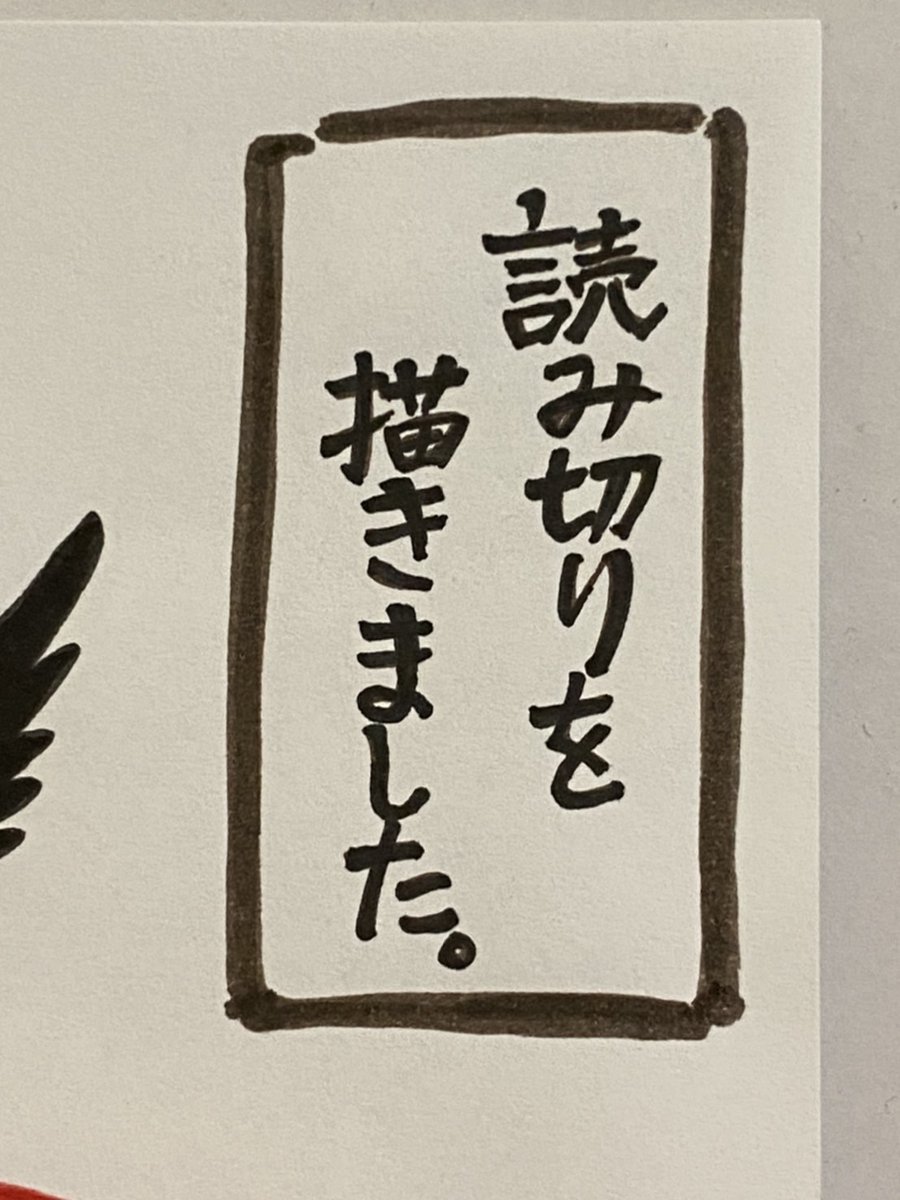 読み切りを
描きました。